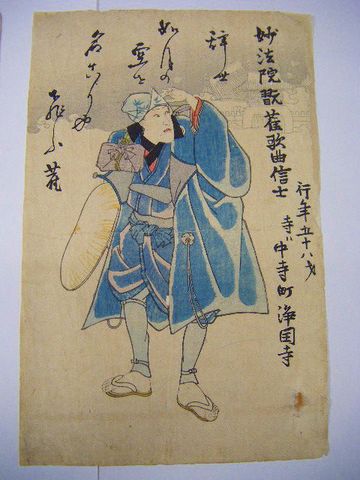 妙法院翫雀歌曲信士
行年五十八才
寺ハ中寺町浄国寺
辞世
如月の
空を
名こりや